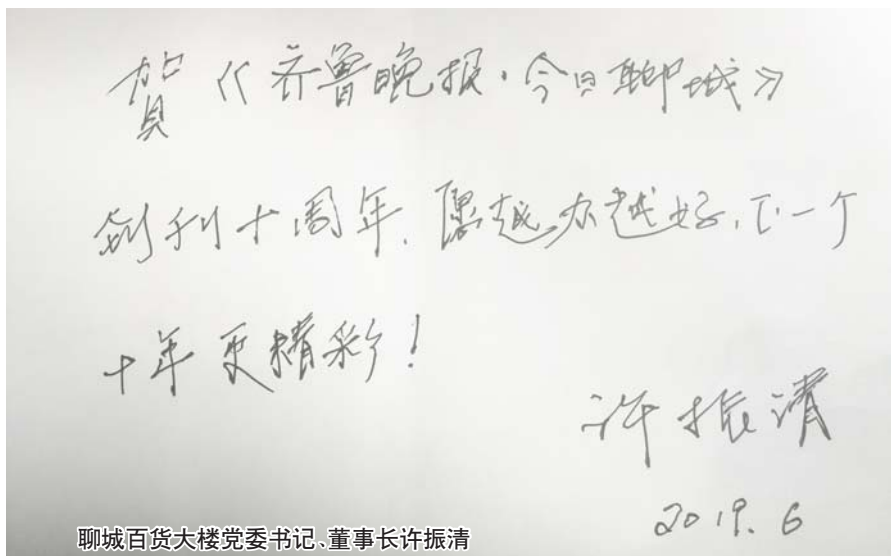 贺《齐鲁晚报·今日聊城》
创刊十周年，愿越办越好，下一个
十年更精彩！
许振清
2019.6
聊城百货大楼党委书记、董事长许振清